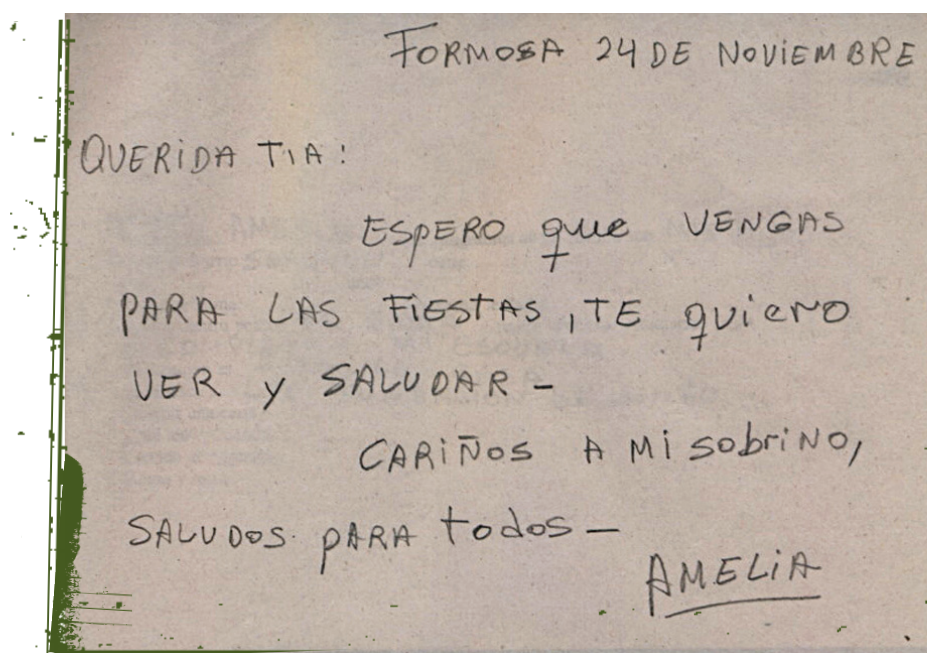 FORMOSA 24 DE NOVIEMBRE
QUERIDA TIA:
ESPERO que VENGAS
PARA LAS FIESTAS, TE quiero
VER y SALUDAR -
CARIÑOS A Mi sobriNO,
SALUDOS PARA todos -
AMELIA